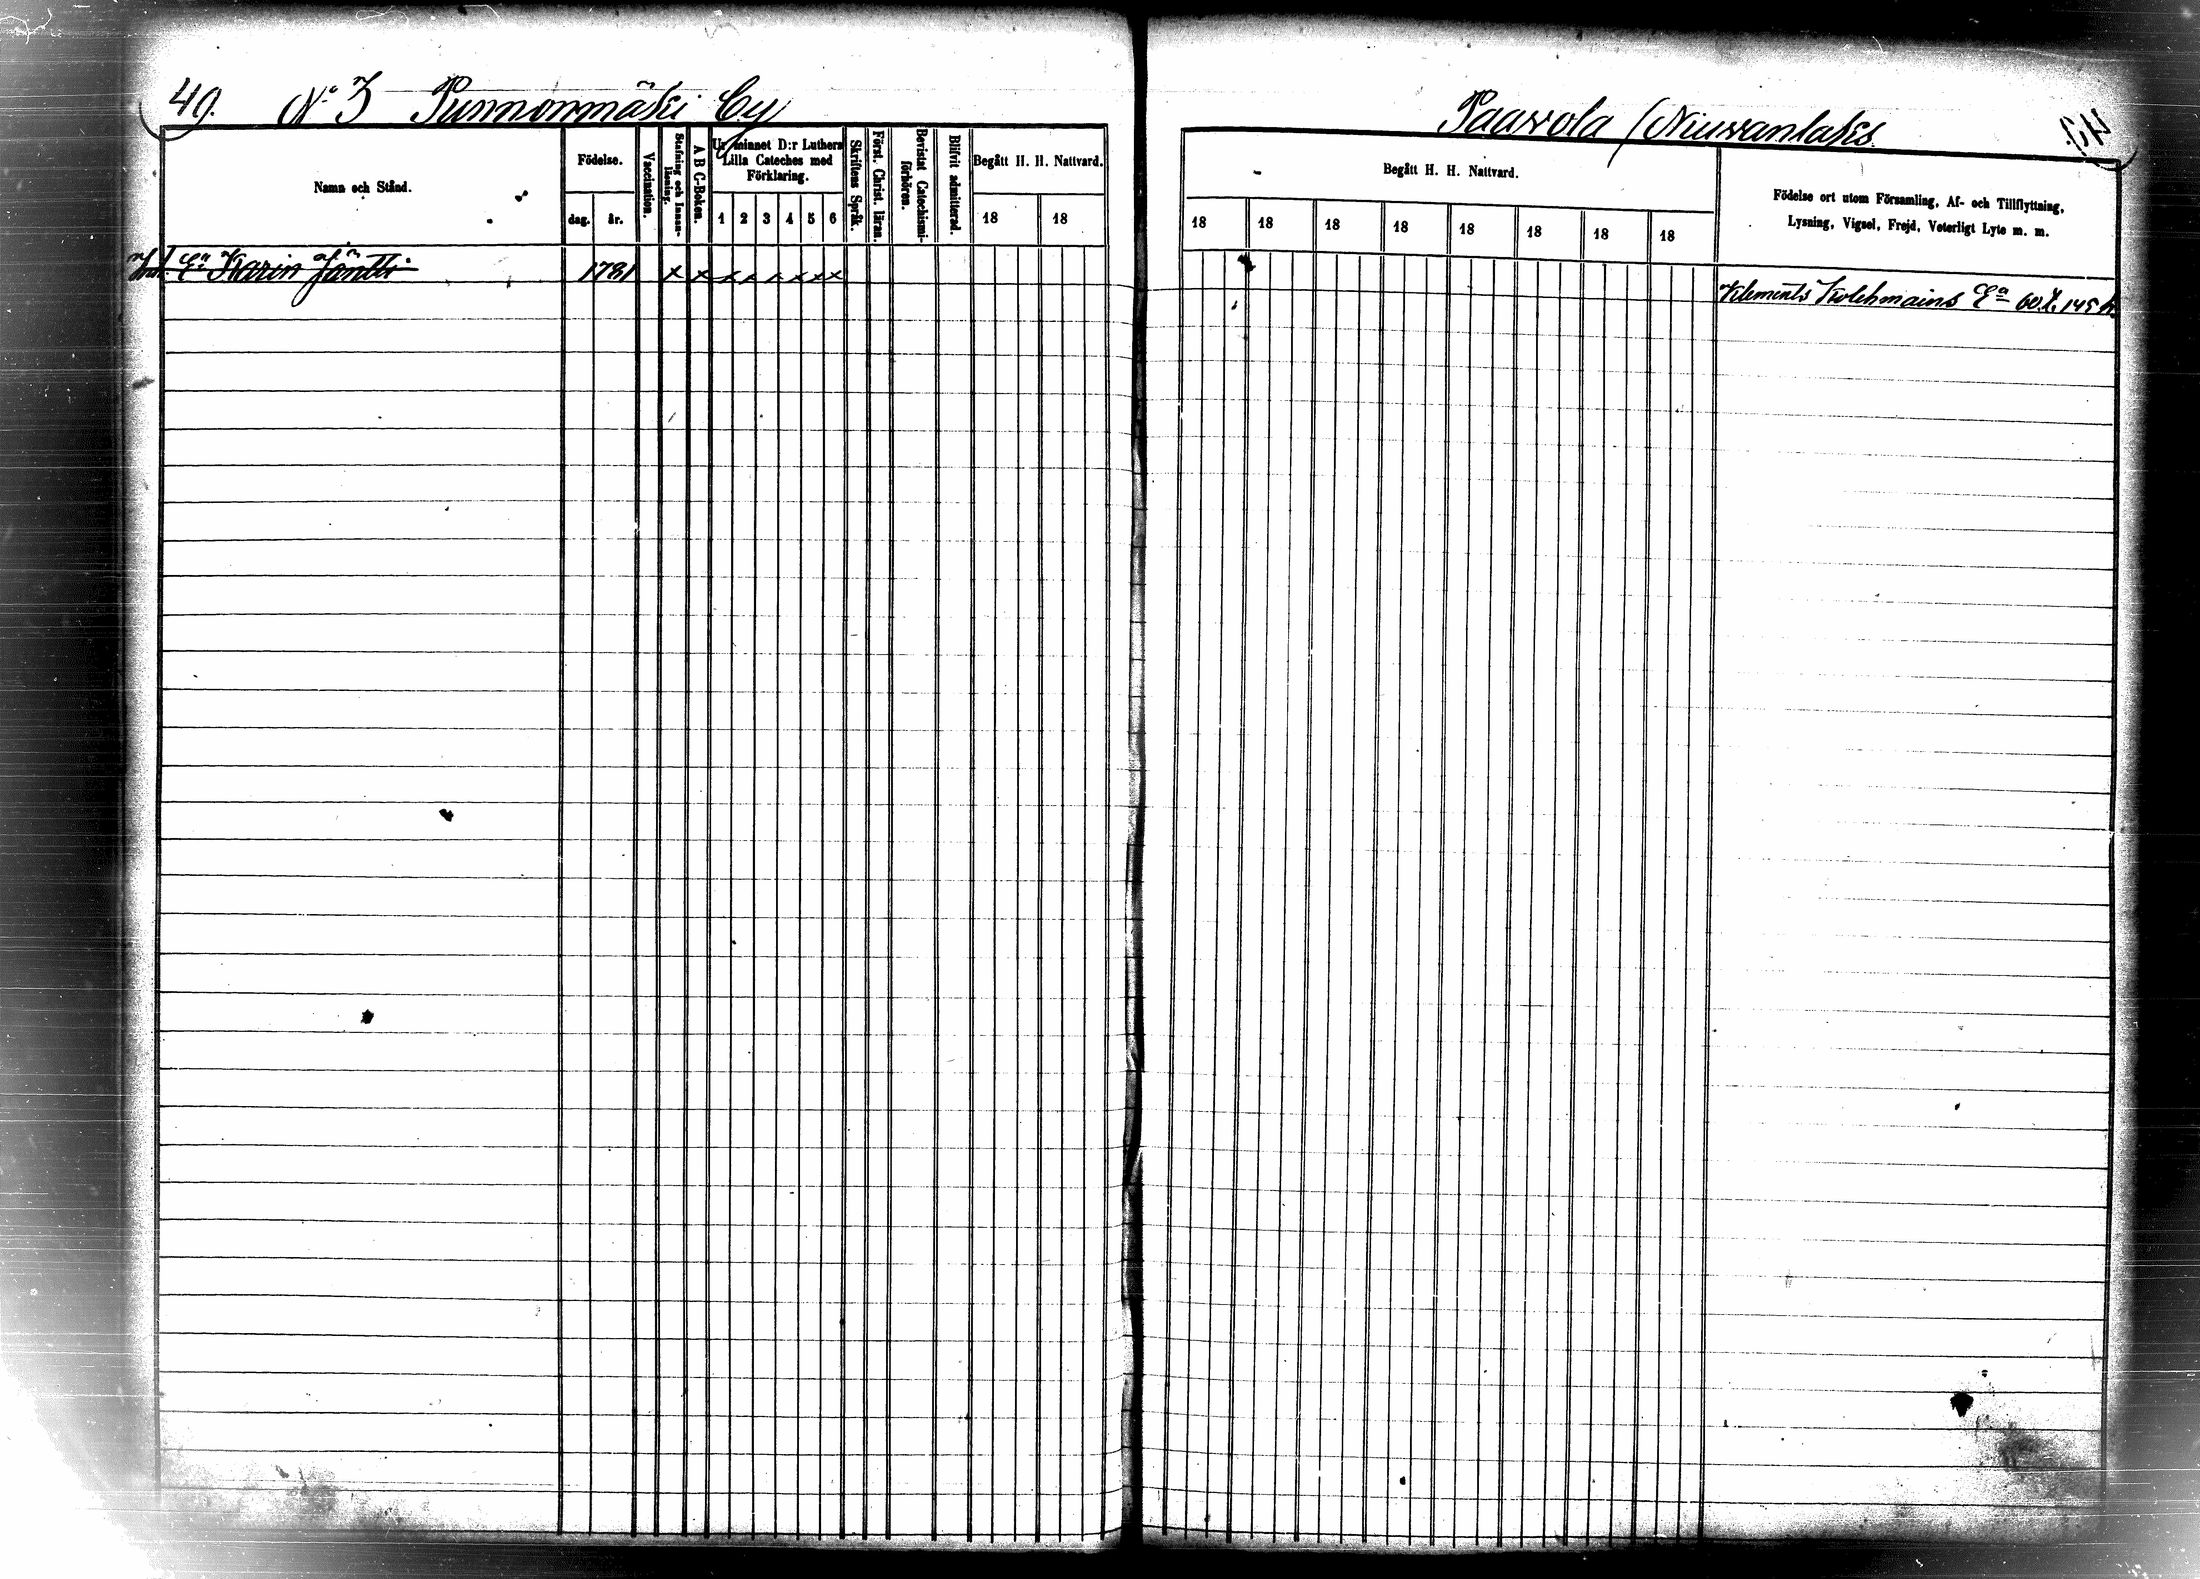 49. No 3 Punnonmäki By
Namn och Stånd.
Födelse.
dag. år.
Vaccination.
Stafning och Innanläsning.
A B C-Boken.
Ur minnet D:r Luthers Lilla Cateches med Förklaring.
1 2 3 4 5 6
Skriftens Språk.
Först. Christ. läran.
Bevistat Catechismiförhören.
Blifvit admitterad.
Begått H. H. Nattvard.
18 18
Ea Karin Jäntti 1781 x x x x x x x x
Paavola / Niuvanlaks
49.
Begått H. H. Nattvard.
18 18 18 18 18 18 18 18
Födelse ort utom Församling, Af- och Tillflyttning,
Lysning, Vigsel, Frejd, Veterligt Lyte m. m.
Klements Kolehmains Ea 60